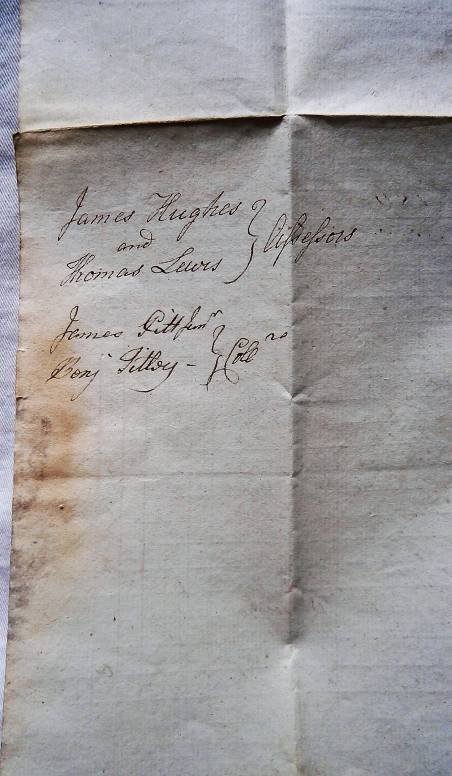 James Hughes
and
Thomas Lewis } Assessors
James Pitt Junr
Benj Tilley - } Collrs